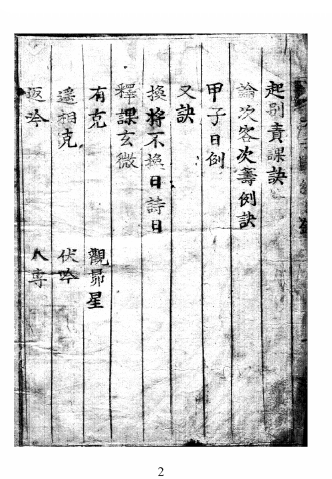 起別責課訣
論次客次籌例訣
甲子日例
又訣
換將不換日詩曰
釋課玄微
有克 觀昴星
遙相克 伏吟
返吟 八專
2